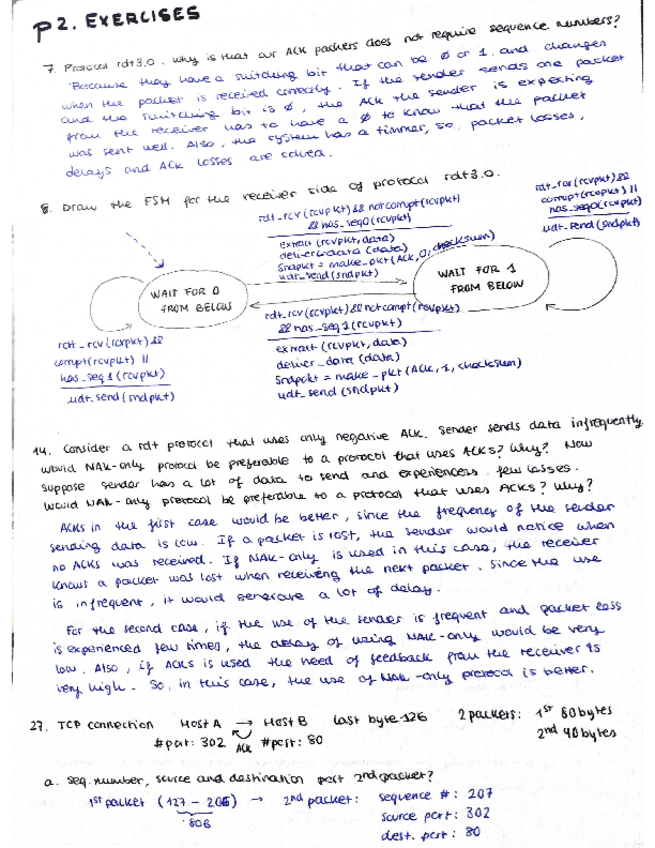 P2. EXERCISES
7. Protocol rdt3.0. why is that our ACK packets does not require sequence numbers?
Because they have a switching bit that can be 0 or 1 and changes
when the packet is received correctly. If the sender sends one packet
and the switching bit is 0, the ACK the sender is expecting
from the receiver has to have a 0 to know that the packet
was sent well. Also, the system has a timmer, so packet losses,
delays and ACK losses are solved.
8. Draw the FSM for the receiver side of protocol rdt3.0.
rdt_rcv(rcvpkt) && notcorrupt(rcvpkt)
&& has_seq0(rcvpkt)
extract(rcvpkt, data)
deliver_data(data)
Sndpkt = make_pkt(ACK, 0, checksum)
udt_send(sndpkt)
rdt_rcv(rcvpkt) &&
corrupt(rcvpkt) ||
has_seq0(rcvpkt)
udt_send(sndpkt)
WAIT FOR 0
FROM BELOW
WAIT FOR 1
FROM BELOW
rdt_rcv(rcvpkt) && notcorrupt(rcvpkt)
&& has_seq1(rcvpkt)
extract(rcvpkt, data)
deliver_data(data)
Sndpkt = make_pkt(ACK, 1, checksum)
udt_send(sndpkt)
rdt_rcv(rcvpkt) &&
corrupt(rcvpkt) ||
has_seq1(rcvpkt)
udt_send(sndpkt)
14. Consider a rdt protocol that uses only negative ACK. Sender sends data infrequently
would NAK-only protocol be preferable to a protocol that uses ACKs? Why? Now
suppose sender has a lot of data to send and experiences few losses.
would NAK-only protocol be preferable to a protocol that uses ACKs? Why?
ACKs in the first case would be better, since the frequency of the sender
sending data is low. If a packet is lost, the sender would notice when
no ACKs was received. If NAK-only is used in this case, the receiver
knows a packet was lost when receiving the next packet. Since the use
is infrequent, it would generate a lot of delay.
For the second case, if the use of the sender is frequent and packet loss
is experienced few times, the delay of using NAK-only would be very
low. Also, if ACKs is used the need of feedback from the receiver is
very high. So, in this case, the use of NAK-only protocol is better.
27. TCP connection Host A → Host B last byte 126 2 packets: 1st 80 bytes
#port: 302 ACK #port: 80 2nd 40 bytes
a. Seq. number, source and destination port 2nd packet?
1st packet (127 - 206) → 2nd packet: sequence #: 207
80B source port: 302
dest. port: 80